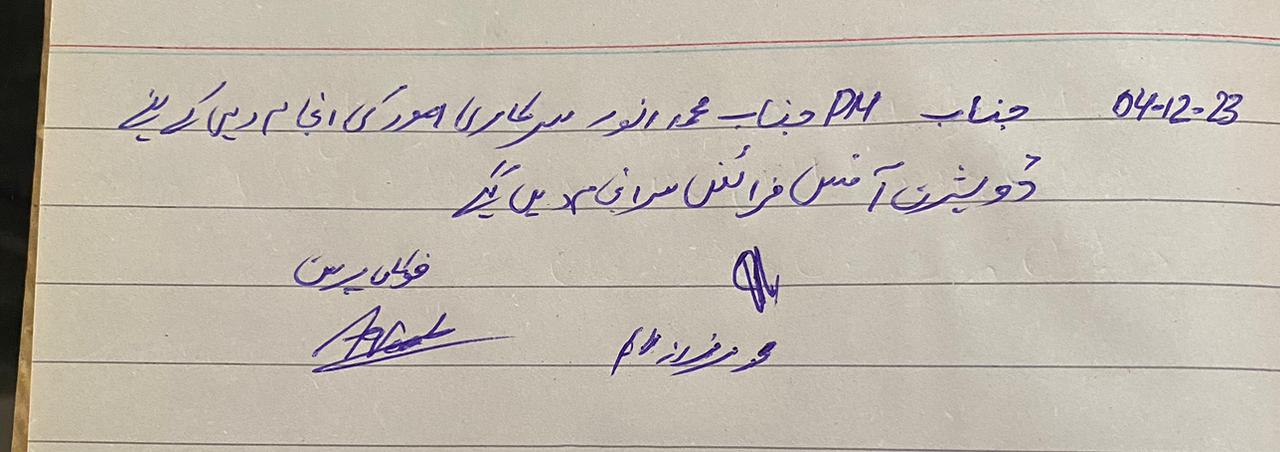 04-12-23 جناب PM جناب محمد انور سرکاری امور کی انجام دہی کے لیے
ڈویژن آفس فرائض سرانجام دیں گے
فوکل پرسن
محمد سرفراز PM